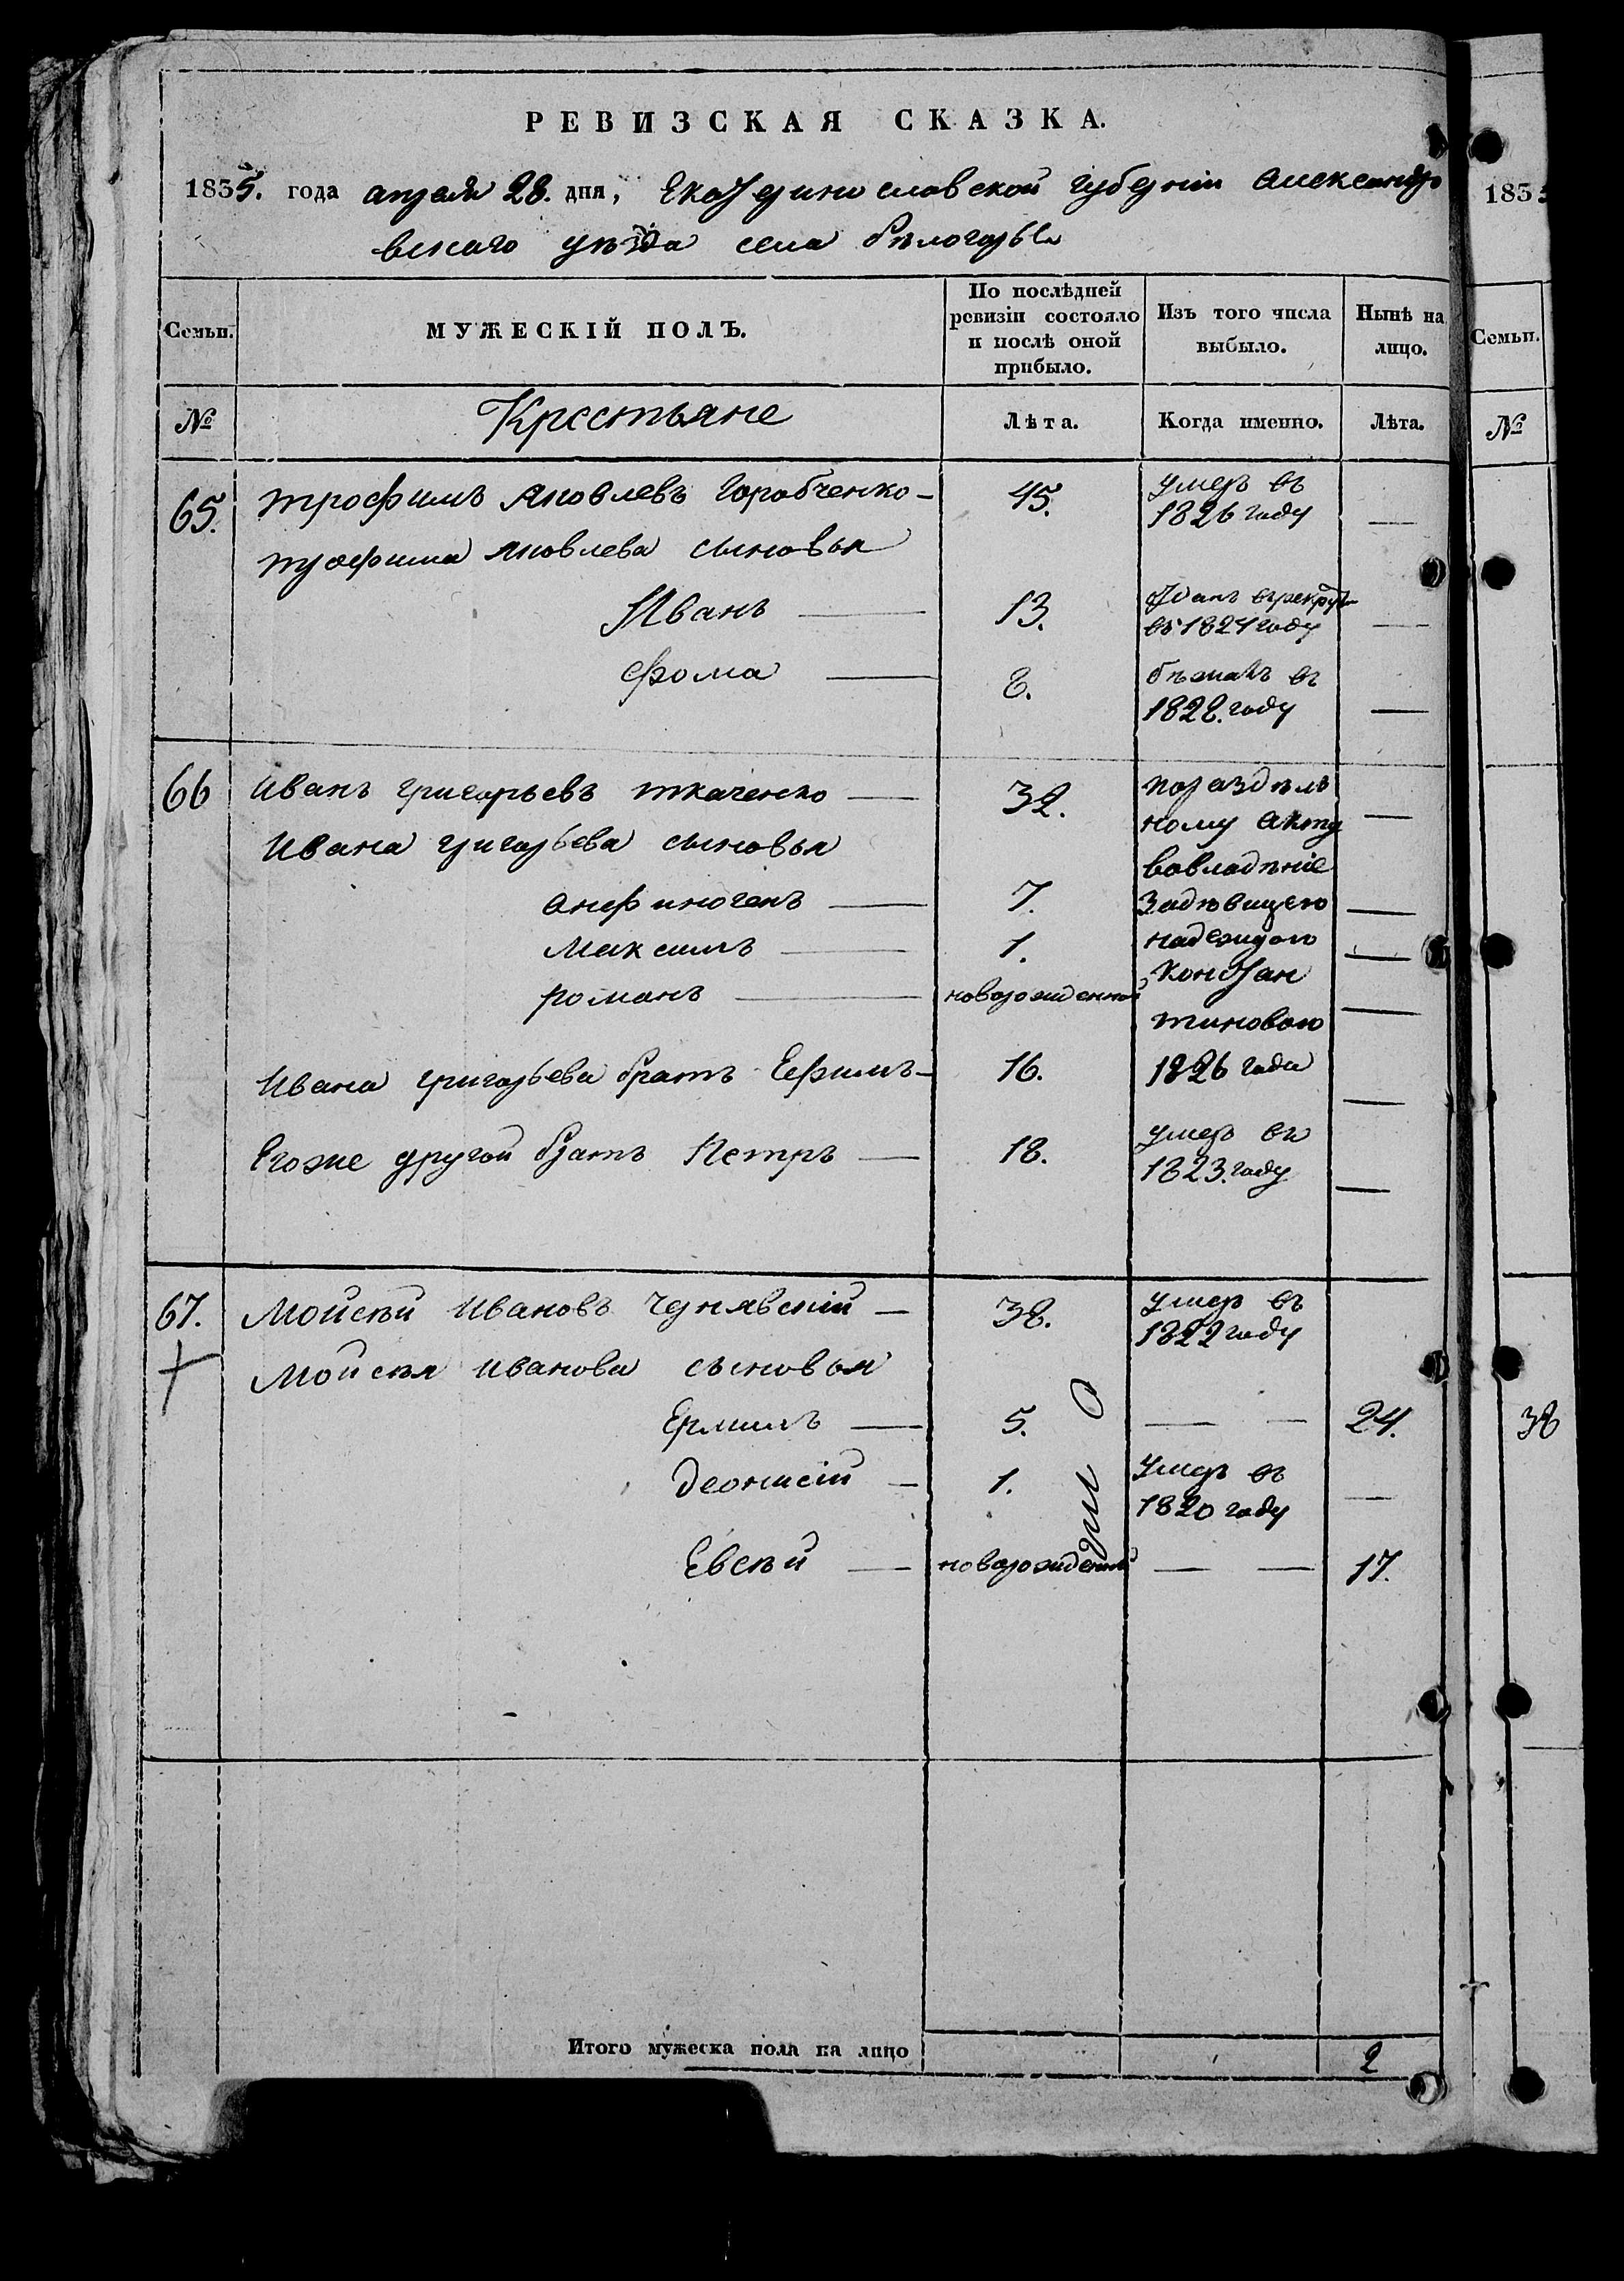 РЕВИЗСКАЯ СКАЗКА.
1835. года апреля 28. дня, Екатеринославской губернiи Александро
вскаго уѣзда села бѣлогорья
183
Семьи.
МУЖЕСКIЙ ПОЛЪ.
По послѣдней
ревизiи состояло
и послѣ оной
прибыло.
Изъ того числа
выбыло.
Нынѣ на
лицо.
Семьи.
№
Крестьяне
Лѣта.
Когда именно.
Лѣта.
№
65. трофимъ яковлевъ горобченко — 45. умеръ въ
1826 году —
трофима яковлева сыновья
Иванъ — 13. отданъ врекруты
въ 1824 году —
фома — 8. бѣжалъ въ
1828. году —
66 иванъ григорьевъ ткаченко — 32. пораздѣль
ному акту —
ивана григорьева сыновья
вовладѣнiе
анфиногенъ — 7. Задовщею —
максимъ — 1. надеждою —
романъ — новорожденной констан —
тиновою
ивана григорьева братъ Ефимъ — 16. 1826 года —
Егоже другой братъ Петръ — 18. умеръ въ
1823. году —
67. Мойсѣй ивановъ чернявскiй — 38. умеръ въ
1822 году
Мойсѣя иванова сыновья
Ермилъ — 5. — — 24. 38
деонисiй — 1. умеръ въ
1820 году —
Евсѣй — новорожденный — — 17.
Итого мужеска пола на лицо 2